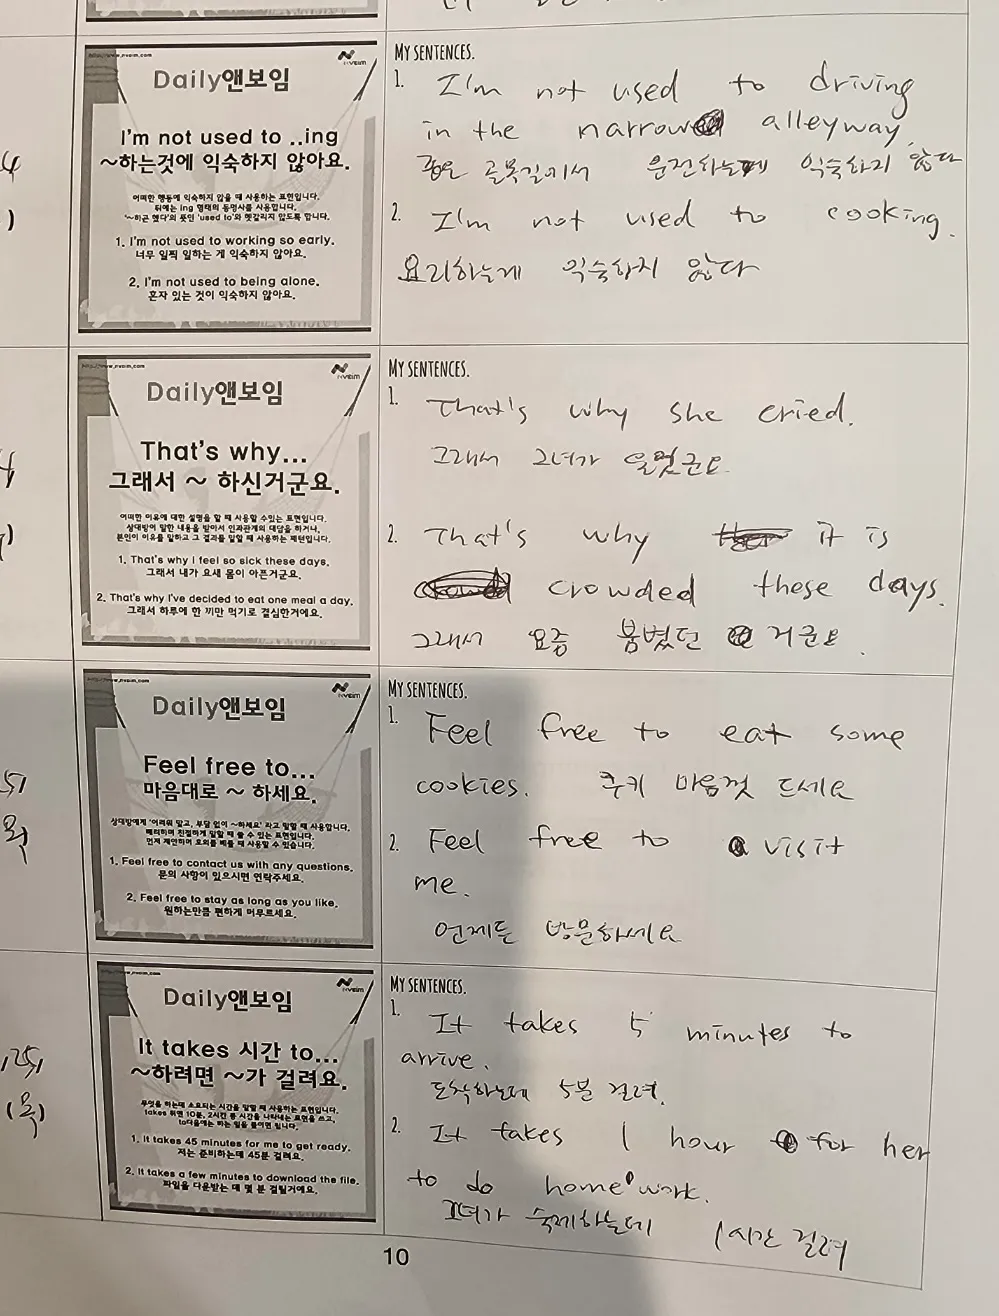 http://www.nveim.com
NVEIM
Daily앤보임
I'm not used to ..ing
~하는것에 익숙하지 않아요.
어떠한 행동에 익숙하지 않을 때 사용하는 표현입니다.
뒤에는 ing 형태의 동명사를 사용합니다.
'~하곤 했다'의 뜻인 'used to'와 헷갈리지 않도록 합니다.
1. I'm not used to working so early.
너무 일찍 일하는 게 익숙하지 않아요.
2. I'm not used to being alone.
혼자 있는 것이 익숙하지 않아요.
MY SENTENCES.
1. I'm not used to driving
in the narrow alleyway.
좁은 골목길에서 운전하는게 익숙하지 않다
2. I'm not used to cooking.
요리하는게 익숙하지 않다
http://www.nveim.com
NVEIM
Daily앤보임
That's why...
그래서 ~ 하신거군요.
어떠한 이유에 대한 설명을 할 때 사용할 수있는 표현입니다.
상대방이 말한 내용을 받아서 인과관계의 대답을 하거나,
본인이 이유를 말하고 그 결과를 말할 때 사용하는 패턴입니다.
1. That's why I feel so sick these days.
그래서 내가 요새 몸이 아픈거군요.
2. That's why I've decided to eat one meal a day.
그래서 하루에 한 끼만 먹기로 결심한거에요.
MY SENTENCES.
1. That's why she cried.
그래서 그녀가 울었군요.
2. That's why it is
crowded these days.
그래서 요즘 붐볐던 거군요.
http://www.nveim.com
NVEIM
Daily앤보임
Feel free to...
마음대로 ~ 하세요.
상대방에게 '어려워 말고, 부담 없이 ~하세요' 라고 말할 때 사용합니다.
배려하며 친절하게 말할 때 쓸 수 있는 표현입니다.
먼저 제안하며 호의를 베풀 때 사용할 수 있습니다.
1. Feel free to contact us with any questions.
문의 사항이 있으시면 연락주세요.
2. Feel free to stay as long as you like.
원하는만큼 편하게 머무르세요.
MY SENTENCES.
1. Feel free to eat some
cookies. 쿠키 마음껏 드세요
2. Feel free to visit
me.
언제든 방문하세요
NVEIM
Daily앤보임
It takes 시간 to...
~하려면 ~가 걸려요.
무엇을 하는데 소요되는 시간을 말할 때 사용하는 표현입니다.
takes 뒤엔 10분, 2시간 등 시간을 나타내는 표현을 쓰고,
to다음에는 하는 일을 붙이면 됩니다.
1. It takes 45 minutes for me to get ready.
저는 준비하는데 45분 걸려요.
2. It takes a few minutes to download the file.
파일을 다운받는 데 몇 분 걸릴거에요.
MY SENTENCES.
1. It takes 5 minutes to
arrive.
도착하는데 5분 걸려.
2. It takes 1 hour for her
to do home work.
그녀가 숙제하는데 1시간 걸려
10